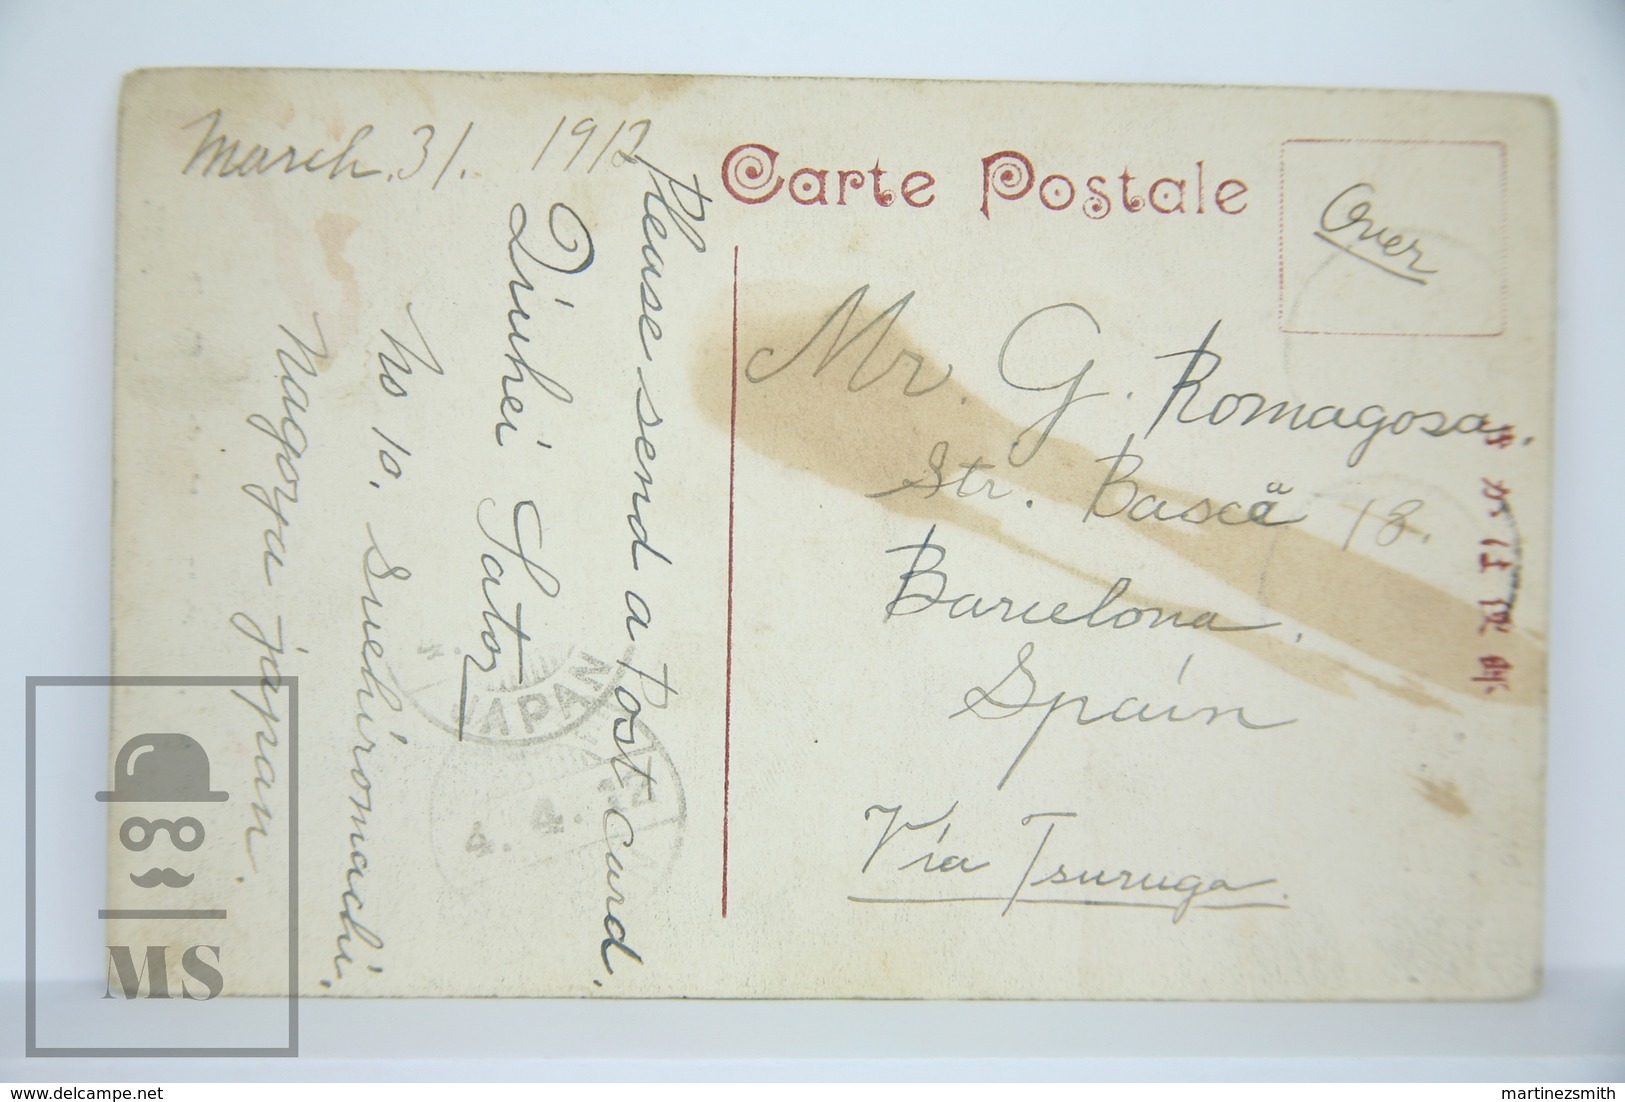 March. 31. 1912
Please send a Post card.
Sator
No 10. Suehiromachi.
Nagoya japan.
Carte Postale
Over
Mr. G. Romagosa.
Str. Bascä 18.
Barcelona.
Spain
Via Tsuruga.
JAPAN
4. 4. 12
MS
delcampe.net
martinezsmith